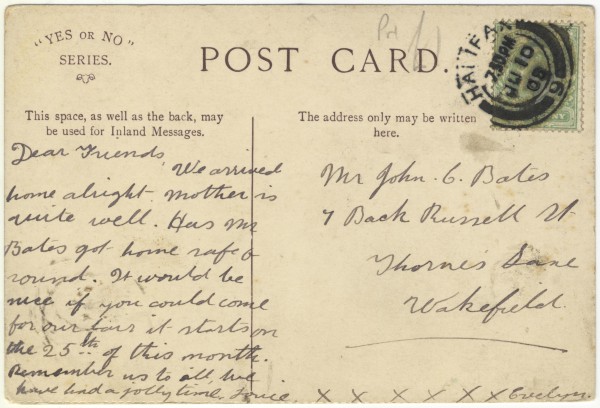 "YES OR NO"
SERIES.
POST CARD.
HALIFAX
7.30PM
JU 10
08
This space, as well as the back, may
be used for Inland Messages.
The address only may be written
here.
Dear Friends, We arrived
home alright. Mother is
quite well. Has Mr
Bates got home safe &
sound. It would be
nice if you could come
for our fair it starts on
the 25th of this month.
Remember us to all, we
have had a jolly time.
x x x x x x Evelyn.
Mr John. C. Bates
7 Back Russell St
Thornes Lane
Wakefield.